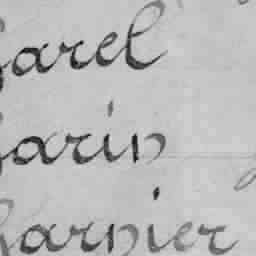 Garel
Garin
Garnier